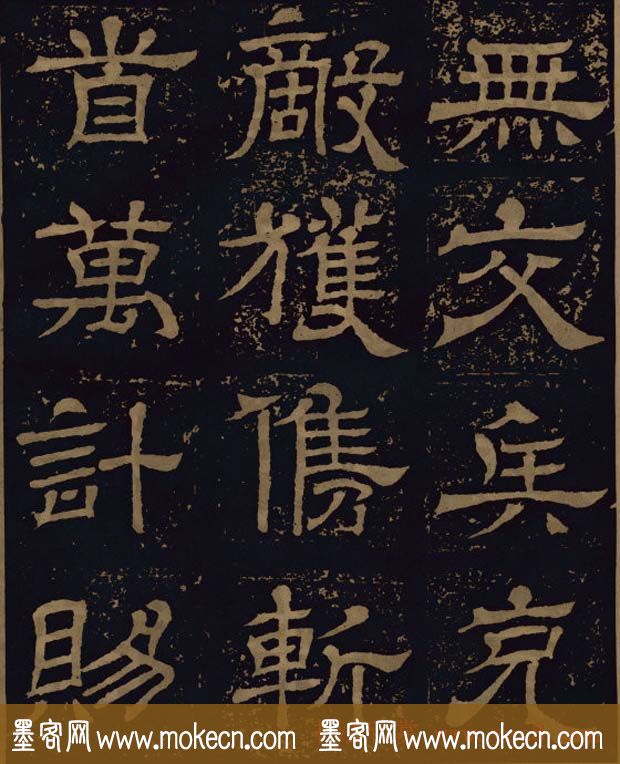 無交兵克
敵獲儁斬
首萬計賜
墨客网 www.mokecn.com 墨客网 www.mokecn.com